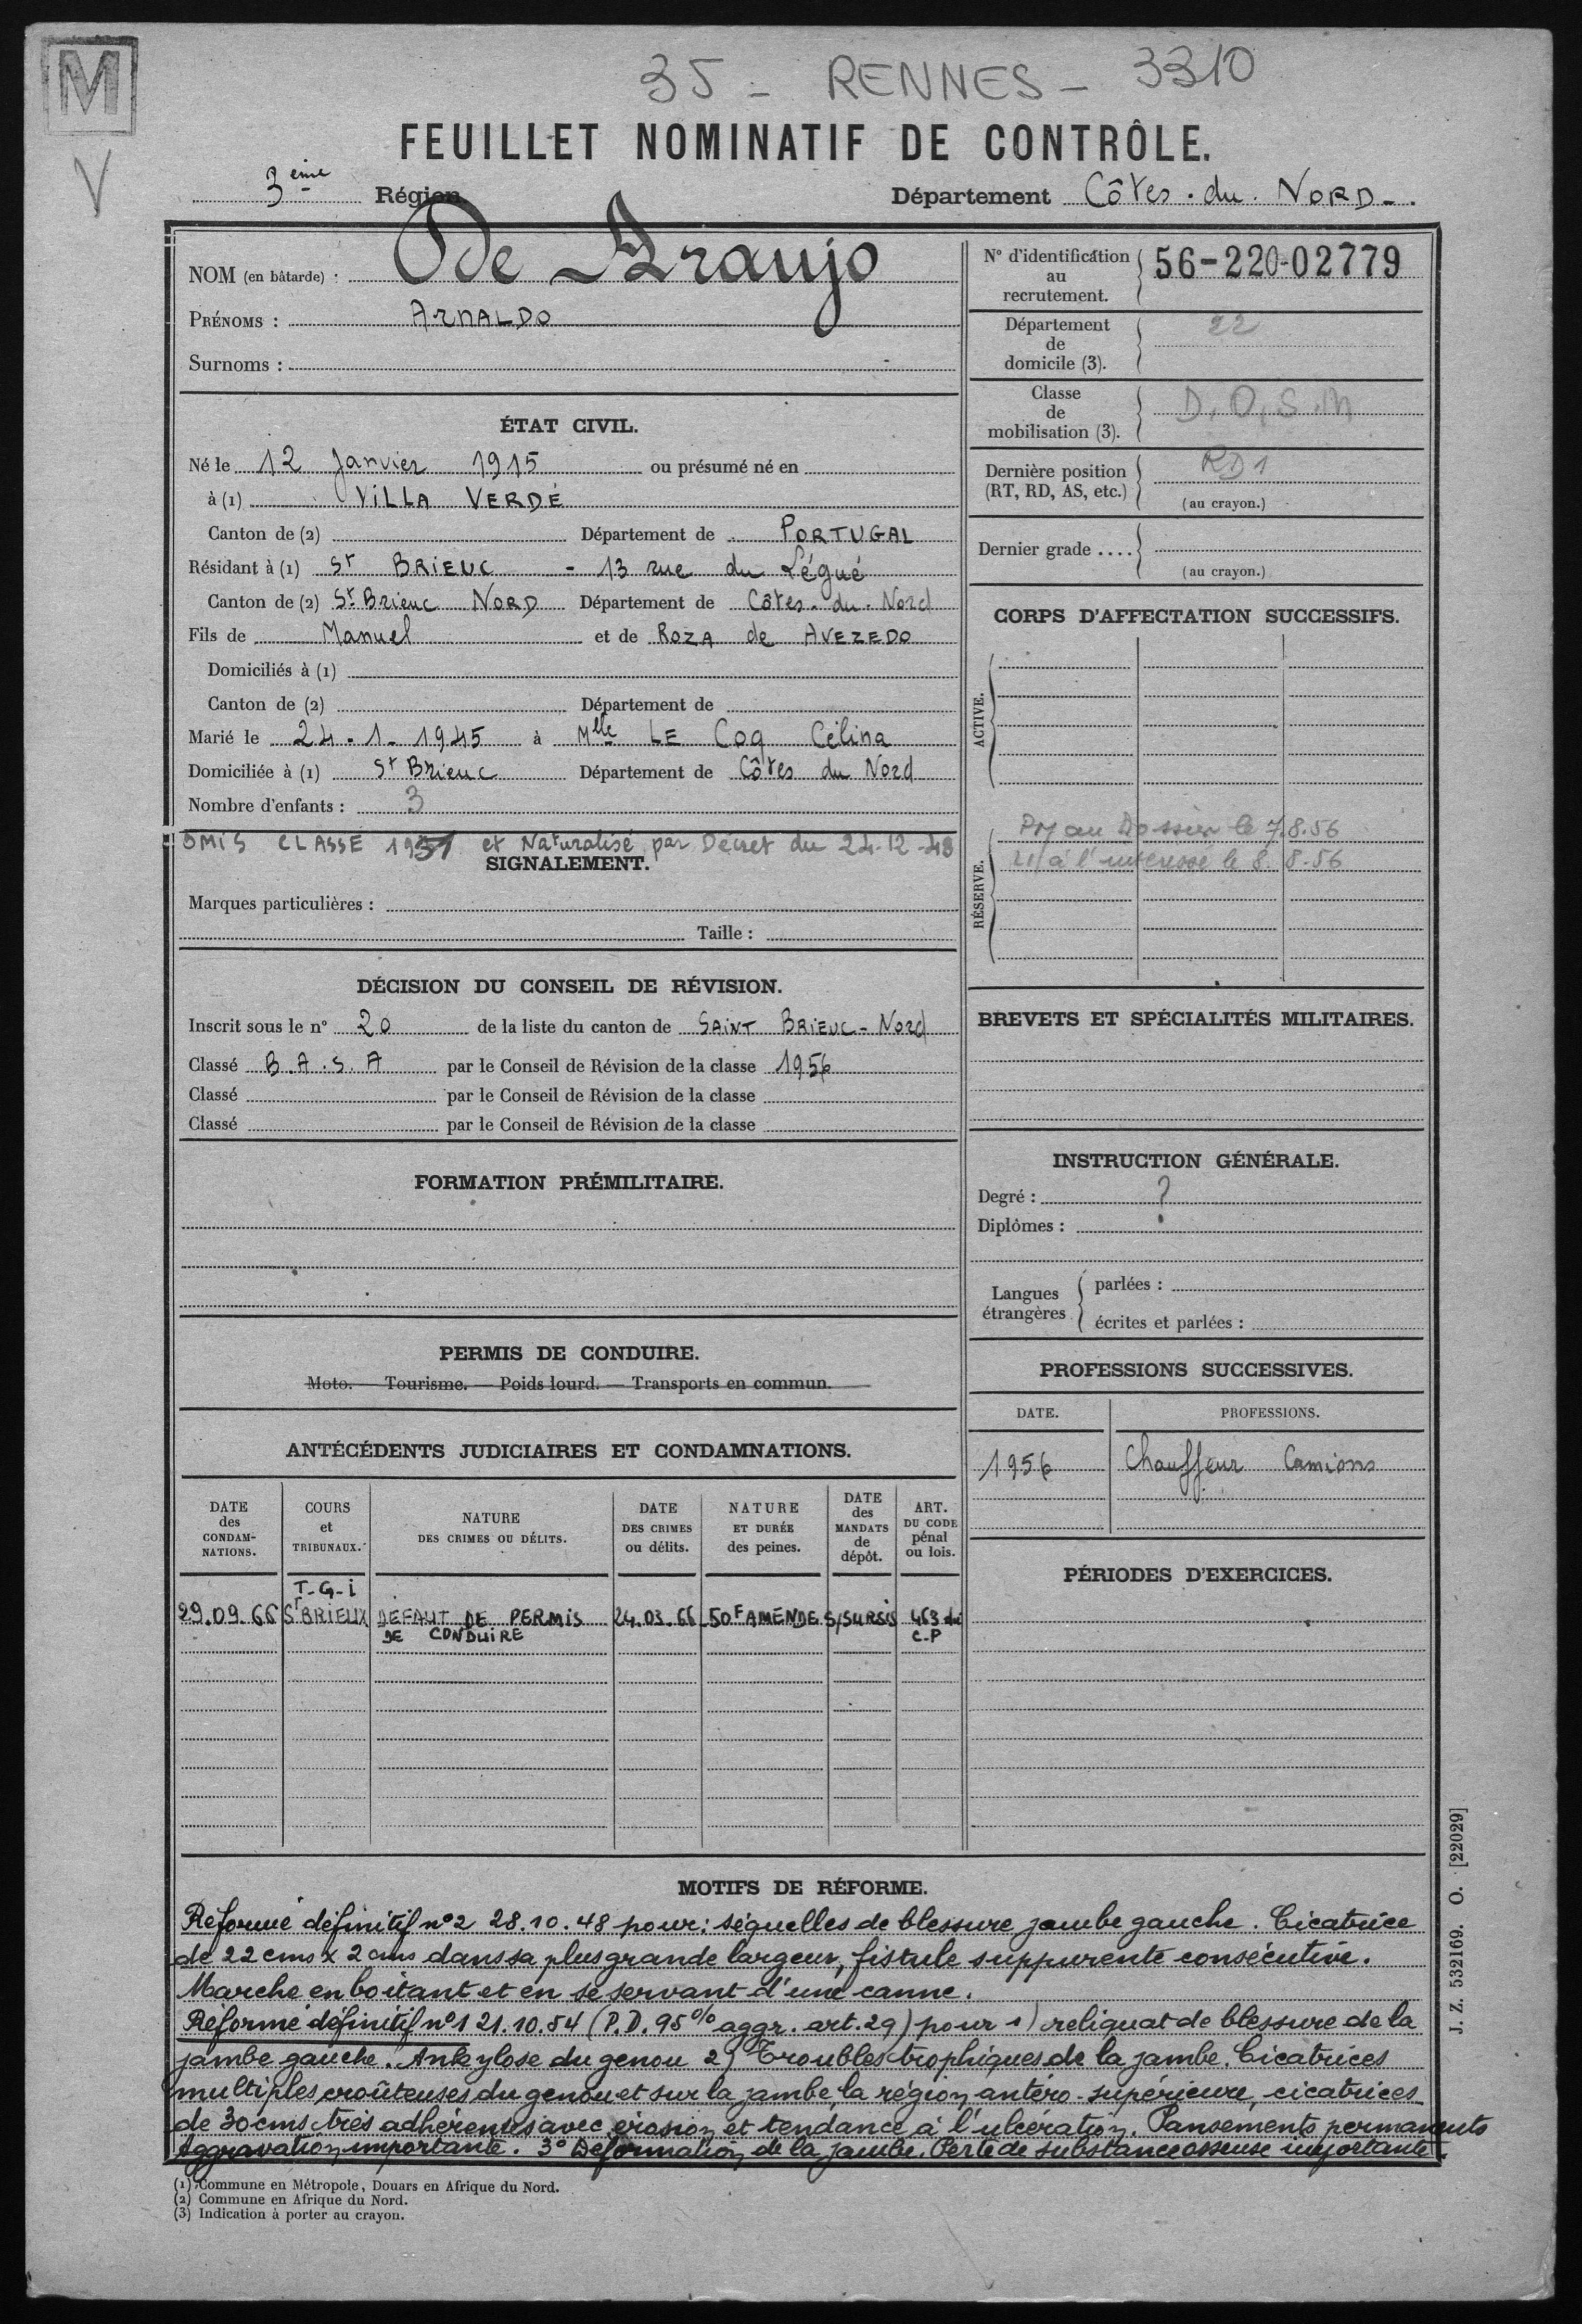 M
V
35 - RENNES - 3310
FEUILLET NOMINATIF DE CONTRÔLE.
3ème Région
Département Côtes.du.NORD-.
NOM (en bâtarde) : De Araujo
PRÉNOMS : ARNALDO
Surnoms :
ÉTAT CIVIL.
Né le 12 Janvier 1915 ou présumé né en
à (1) VILLA VERDÉ
Canton de (2) Département de PORTUGAL
Résidant à (1) St BRIEUC - 13 rue du Légué
Canton de (2) St Brieuc NORD Département de Côtes.du.Nord
Fils de Manuel et de ROZA de AVEZEDO
Domiciliés à (1)
Canton de (2) Département de
Marié le 24-1-1945 à Mlle LE Coq Célina
Domiciliée à (1) St Brieuc Département de Côtes du Nord
Nombre d'enfants : 3
OMIS CLASSE 1951 et Naturalisé par Décret du 24-12-48
SIGNALEMENT.
Marques particulières :
Taille :
DÉCISION DU CONSEIL DE RÉVISION.
Inscrit sous le n° 20 de la liste du canton de SAINT BRIEUC-Nord
Classé B.A.S.A par le Conseil de Révision de la classe 1956
Classé par le Conseil de Révision de la classe
Classé par le Conseil de Révision de la classe
FORMATION PRÉMILITAIRE.
PERMIS DE CONDUIRE.
Moto. — Tourisme. — Poids lourd. — Transports en commun.
ANTÉCÉDENTS JUDICIAIRES ET CONDAMNATIONS.
DATE des CONDAM-NATIONS.
COURS et TRIBUNAUX.
NATURE DES CRIMES OU DÉLITS.
DATE DES CRIMES ou délits.
NATURE ET DURÉE des peines.
DATE des MANDATS de dépôt.
ART. DU CODE pénal ou lois.
T-G-I
29.09.66 St BRIEUX DEFAUT DE PERMIS 24.03.66 50F AMENDE S/SURSIS 463 du
DE CONDUIRE C-P
N° d'identification au recrutement. 56-220-02779
Département de domicile (3). 22
Classe de mobilisation (3). D.O.S.M
Dernière position (RT, RD, AS, etc.) RD1
(au crayon.)
Dernier grade ....
(au crayon.)
CORPS D'AFFECTATION SUCCESSIFS.
ACTIVE.
RÉSERVE.
au Dossier le 7.8.56
à l'intéressé le 8.8.56
BREVETS ET SPÉCIALITÉS MILITAIRES.
INSTRUCTION GÉNÉRALE.
Degré : ?
Diplômes :
Langues étrangères
parlées :
écrites et parlées :
PROFESSIONS SUCCESSIVES.
DATE. PROFESSIONS.
1956 Chauffeur Camions
PÉRIODES D'EXERCICES.
MOTIFS DE RÉFORME.
Réformé définitif n°2 28.10.48 pour: séquelles de blessure jambe gauche. Cicatrice
de 22 cms x 2 cms dans sa plus grande largeur, fistule suppurente consécutive.
Marche en boitant et en se servant d'une canne.
Réformé définitif n°1 21.10.54 (P.D. 95% aggr. art.29) pour 1) reliquat de blessure de la
jambe gauche. Ankylose du genou 2) Troubles trophiques de la jambe. Cicatrices
multiples croûteuses du genou et sur la jambe, la région antéro-supérieure, cicatrices
de 30 cms très adhérentes avec érosion et tendance à l'ulcération. Pansements permanents
Aggravation importante. 3° Déformation de la jambe. Perte de substance osseuse importante
(1) Commune en Métropole, Douars en Afrique du Nord.
(2) Commune en Afrique du Nord.
(3) Indication à porter au crayon.
J. Z. 532169. O. [22029]